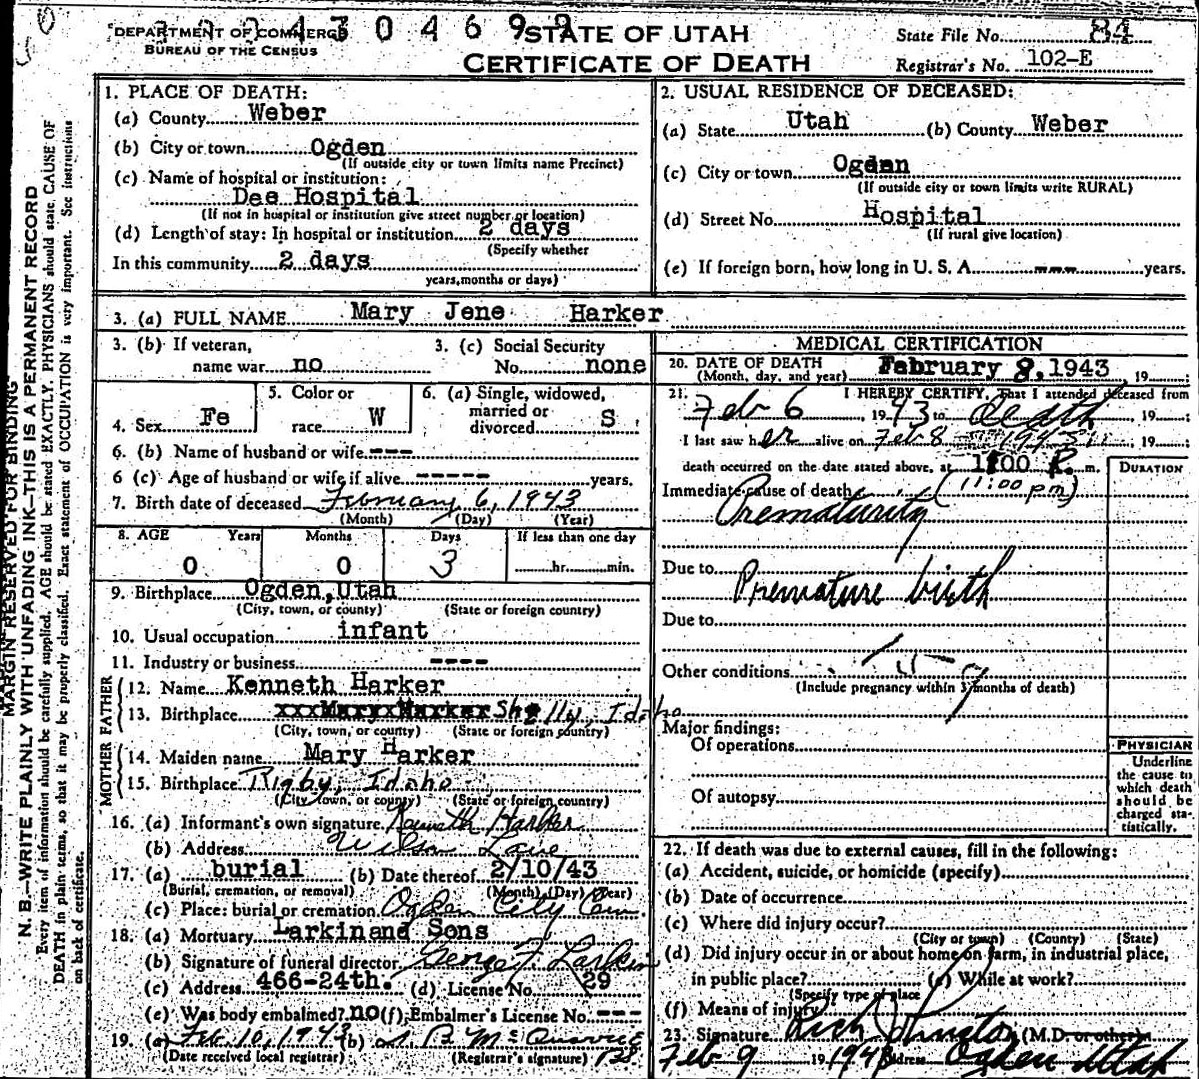 DEPARTMENT OF COMMERCE
BUREAU OF THE CENSUS
STATE OF UTAH
CERTIFICATE OF DEATH
State File No. 84
Registrar's No. 102-E
MARGIN RESERVED FOR BINDING
N. B.—WRITE PLAINLY WITH UNFADING INK—THIS IS A PERMANENT RECORD
Every item of information should be carefully supplied. AGE should be stated EXACTLY. PHYSICIANS should state CAUSE OF
DEATH in plain terms, so that it may be properly classified. Exact statement of OCCUPATION is very important. See instructions
on back of certificate.
1. PLACE OF DEATH:
(a) County Weber
(b) City or town Ogden
(If outside city or town limits name Precinct)
(c) Name of hospital or institution:
Dee Hospital
(If not in hospital or institution give street number or location)
(d) Length of stay: In hospital or institution 2 days
(Specify whether
In this community 2 days
years, months or days)
2. USUAL RESIDENCE OF DECEASED:
(a) State Utah (b) County Weber
(c) City or town Ogden
(If outside city or town limits write RURAL)
(d) Street No. Hospital
(If rural give location)
(e) If foreign born, how long in U. S. A. --- years.
3. (a) FULL NAME Mary Jene Harker
3. (b) If veteran,
name war no
3. (c) Social Security
No. none
4. Sex Fe
5. Color or
race W
6. (a) Single, widowed,
married or
divorced S
6. (b) Name of husband or wife ---
6 (c) Age of husband or wife if alive ----- years.
7. Birth date of deceased February 6, 1943
(Month) (Day) (Year)
8. AGE Years Months Days If less than one day
0 0 3 hr. min.
9. Birthplace Ogden, Utah
(City, town, or county) (State or foreign country)
10. Usual occupation infant
11. Industry or business ----
FATHER
12. Name Kenneth Harker
13. Birthplace xxxMaryxHarker Shelly, Idaho
(City, town, or county) (State or foreign country)
MOTHER
14. Maiden name Mary Harker
15. Birthplace Rigby, Idaho
(City, town, or county) (State or foreign country)
16. (a) Informant's own signature Kenneth Harker
(b) Address Wilson Lane
17. (a) burial (b) Date thereof 2/10/43
(Burial, cremation, or removal) (Month) (Day) (Year)
(c) Place: burial or cremation Ogden City Cem.
18. (a) Mortuary Larkin and Sons
(b) Signature of funeral director George F Larkin
(c) Address 466-24th. (d) License No. 29
(e) Was body embalmed? no (f) Embalmer's License No. ---
19. (a) Feb 10, 1943 (b)
(Date received local registrar) (Registrar's signature)
MEDICAL CERTIFICATION
20. DATE OF DEATH
(Month, day, and year) February 8, 1943 19
21. I HEREBY CERTIFY, That I attended deceased from
Feb 6 1943 to death 19
I last saw her alive on Feb 8 1943 19
death occurred on the date stated above, at 11:00 P. m.
(11:00 pm)
DURATION
Immediate cause of death
Prematurity
Due to Premature birth
Due to
Other conditions
(Include pregnancy within 3 months of death)
Major findings:
Of operations
Of autopsy
PHYSICIAN
Underline
the cause to
which death
should be
charged sta-
tistically.
22. If death was due to external causes, fill in the following:
(a) Accident, suicide, or homicide (specify)
(b) Date of occurrence
(c) Where did injury occur?
(City or town) (County) (State)
(d) Did injury occur in or about home, on farm, in industrial place,
in public place? (e) While at work?
(Specify type of place
(f) Means of injury
23. Signature Rich Johnston (M.D. or other)
Feb 9 19 1943 Address Ogden Utah